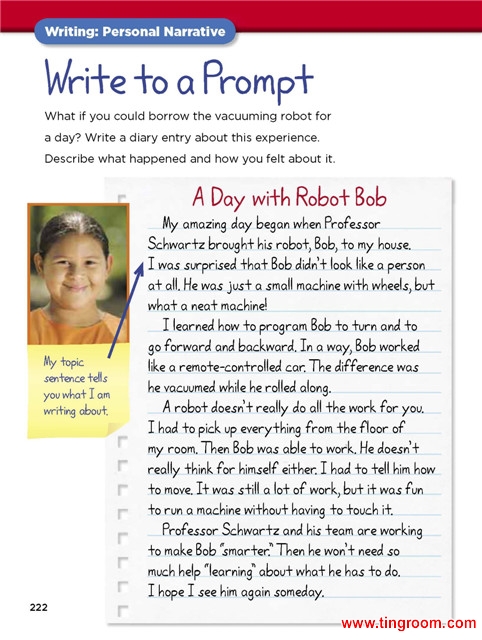 Writing: Personal Narrative
Write to a Prompt
What if you could borrow the vacuuming robot for
a day? Write a diary entry about this experience.
Describe what happened and how you felt about it.
A Day with Robot Bob
My amazing day began when Professor
Schwartz brought his robot, Bob, to my house.
I was surprised that Bob didn't look like a person
at all. He was just a small machine with wheels, but
what a neat machine!
I learned how to program Bob to turn and to
go forward and backward. In a way, Bob worked
like a remote-controlled car. The difference was
he vacuumed while he rolled along.
A robot doesn't really do all the work for you.
I had to pick up everything from the floor of
my room. Then Bob was able to work. He doesn't
really think for himself either. I had to tell him how
to move. It was still a lot of work, but it was fun
to run a machine without having to touch it.
Professor Schwartz and his team are working
to make Bob "smarter." Then he won't need so
much help "learning" about what he has to do.
I hope I see him again someday.
My topic
sentence tells
you what I am
writing about.
222
www.tingroom.com